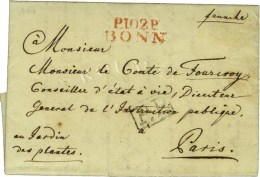 franche
P.102.P.
BONN
à Monsieur
Monsieur le Comte de Fourcroy
Conseiller d'état à vie, Directeur
General de l'Instruction publique,
au Jardin
des plantes.
Paris.